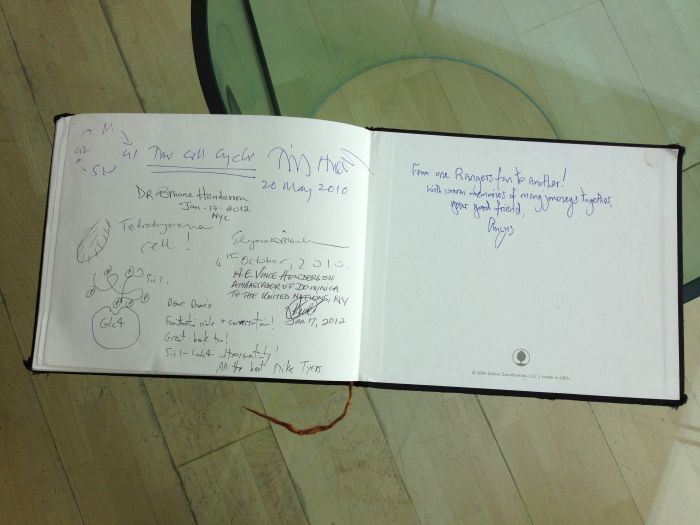 M
G1
The Cell Cycle
Tim Hunt
20 May 2010
Dr
Henderson
Jan-17-2012
NYC
Tetrahymena
cell!
4th October, 2010.
H.E. Vince Henderson
Ambassador of Dominica
to the United Nations, NY
Jan 17, 2012
Sic1
Cdc4
Fantastic ride & conversation!
Great book too!
Sic1-Cdc4
All the best Mike Tyers
From one Rangers fan to another!
With warm memories of many journeys together,
your good friend,
© 2004 Gallina Countryman, LLC | made in USA